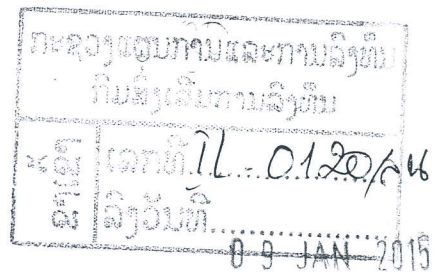 ກະຊວງແຜນການແລະການລົງທຶນ
ກົມສົ່ງເສີມການລົງທຶນ
ເລກທີ 01.20/
ລົງວັນທີ
09 JAN 2015